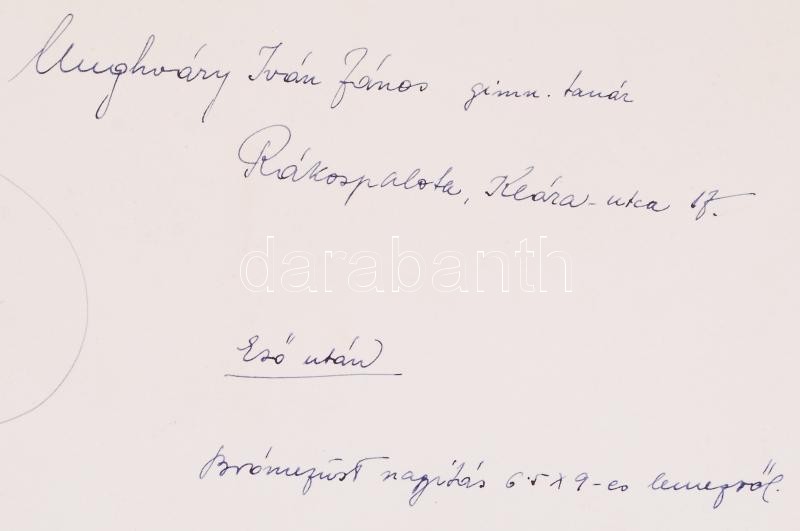 Unghváry Iván János gimn. tanár
Rákospalota, Klára-utca 17.
darabanth
Eső után
Brómezüst nagyítás 6.5 x 9-es lemezről.